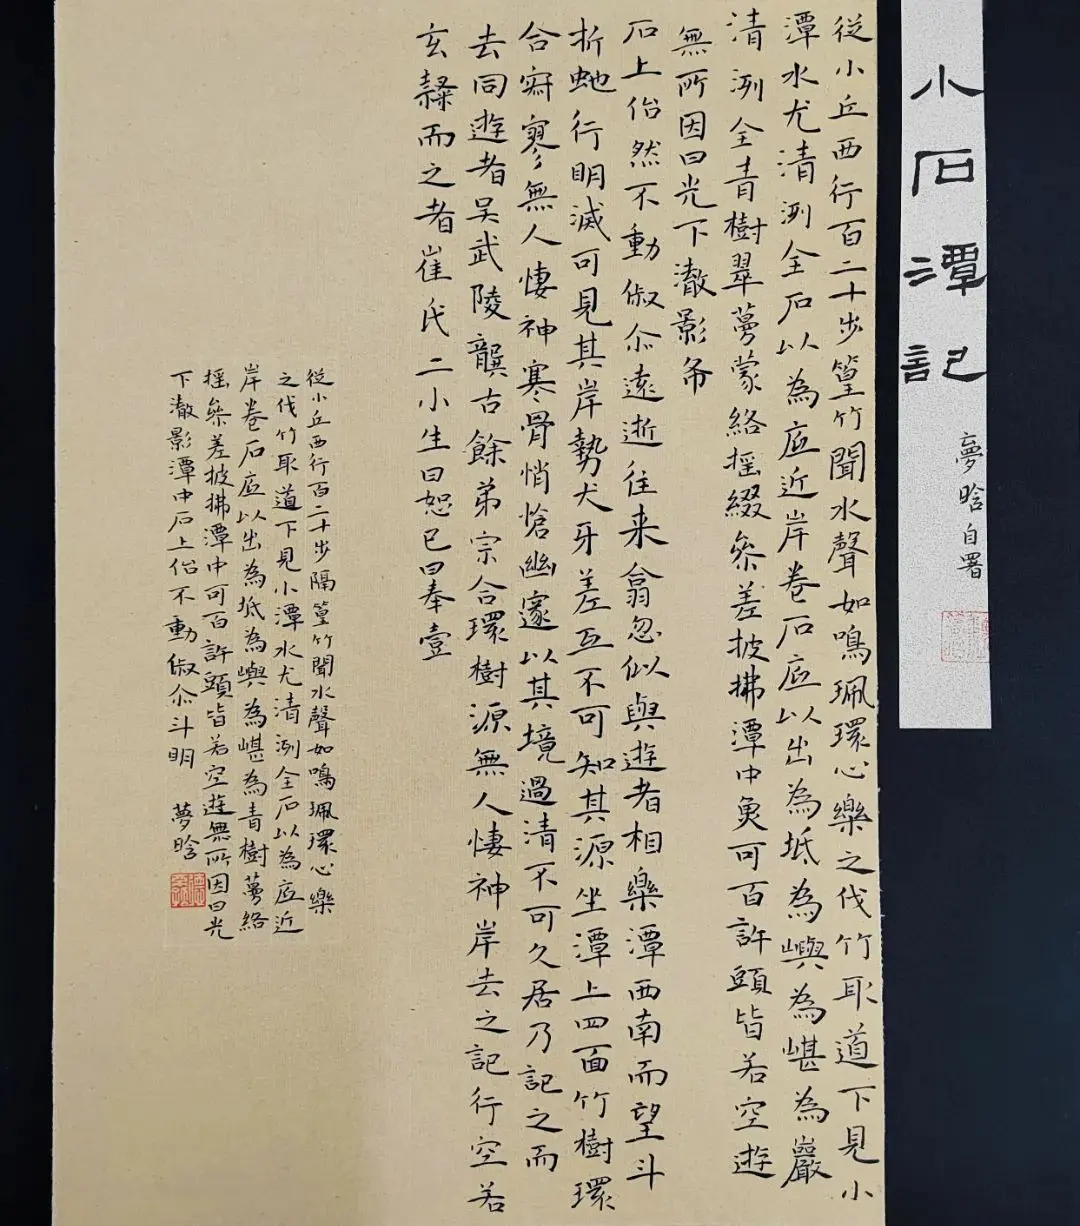 小石潭記
夢晗自署
從小丘西行百二十步篁竹聞水聲如鳴珮環心樂之伐竹取道下見小
潭水尤清洌全石以為底近岸卷石底以出為坻為嶼為嵁為巖
清洌全青樹翠蔓蒙絡摇綴參差披拂潭中魚可百許頭皆若空遊
無所因日光下澈影布
石上佁然不動俶尒遠逝往来翕忽似與遊者相樂潭西南而望斗
折虵行明滅可見其岸勢犬牙差互不可知其源坐潭上四面竹樹環
合寂寥無人悽神寒骨悄愴幽邃以其境過清不可久居乃記之而
去同遊者吴武陵龔古餘弟宗合環樹源無人悽神岸去之記行空若
玄隸而之者崔氏二小生曰恕已曰奉壹
從小丘西行百二十步隔篁竹聞水聲如鳴珮環心樂
之伐竹取道下見小潭水尤清洌全石以為底近
岸卷石底以出為坻為嶼為嵁為青樹蔓絡
摇參差披拂潭中可百許頭皆若空遊無所因日光
下澈影潭中石上佁不動俶尒斗明
夢晗